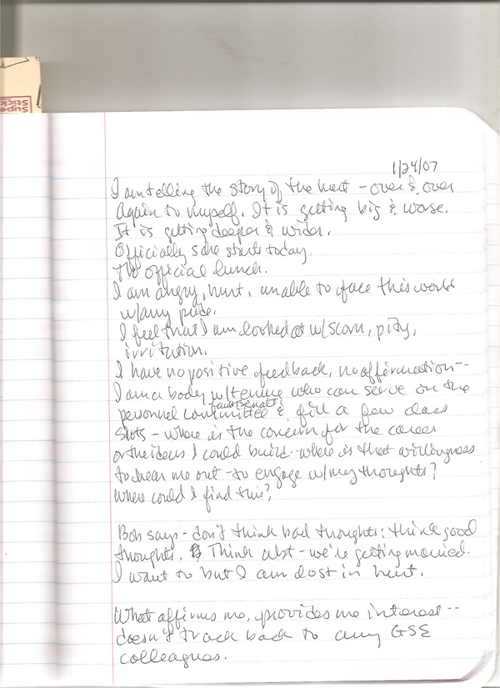 Super
Stick
1/24/07
I am telling the story of the hurt - over & over
Again to myself. It is getting big & worse.
It is getting deeper & wider.
Officially she starts today.
The official lunch.
I am angry, hurt, unable to face this world
w/any pride.
I feel that I am looked at w/scorn, pity,
irritation.
I have no positive feedback, no affirmation--
I am a body w/tenure who can serve on the
personnel committee & fill a few class
slots - where is the concern for the career
or the ideas I could build - where is that willingness
to hear me out - to engage w/my thoughts?
Where could I find this?
Bob says - don't think bad thoughts: think good
thoughts. Think abt - we're getting married.
I want to but I am lost in hurt.
What affirms me, provides me interest --
doesn't track back to any GSE
colleagues.